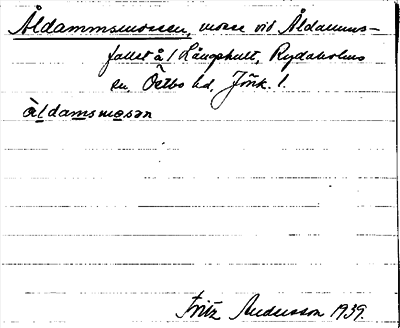 Åldammsmossen, mosse vid Åldamms-
fallet å 1 Långhult, Rydaholms
sn. Östbo hd. Jönk. l.
åldamsmosən
Fritz Andersson 1939.